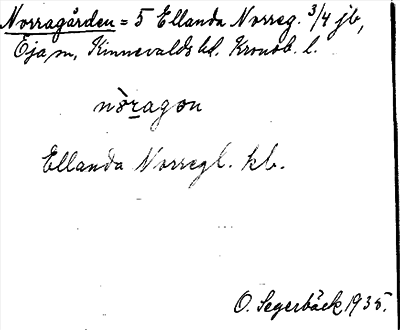 Norragården = 5 Ellanda Norreg. 3/4 jb,
Öja sn, Kinnevalds hd. Kronob. l.
nòragɔn
Ellanda Norregl. kb.
O. Segerbäck 1935.